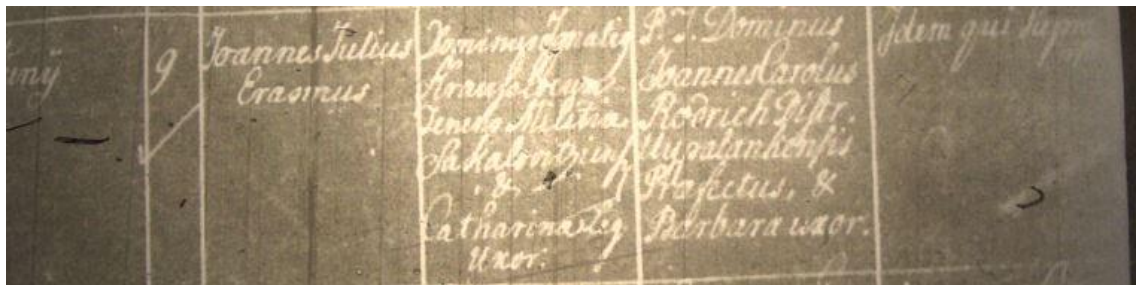 unÿ
9
Joannes Julius
Erasmus
Dominus Ignatig
Tenens Militia
&
Catharina Leg
Uxor.
P. T. Dominus
Joannes Carolus
Rodrich Distr.
Uypalankensis
Præfectus, &
Barbara uxor.
Idem qui supra